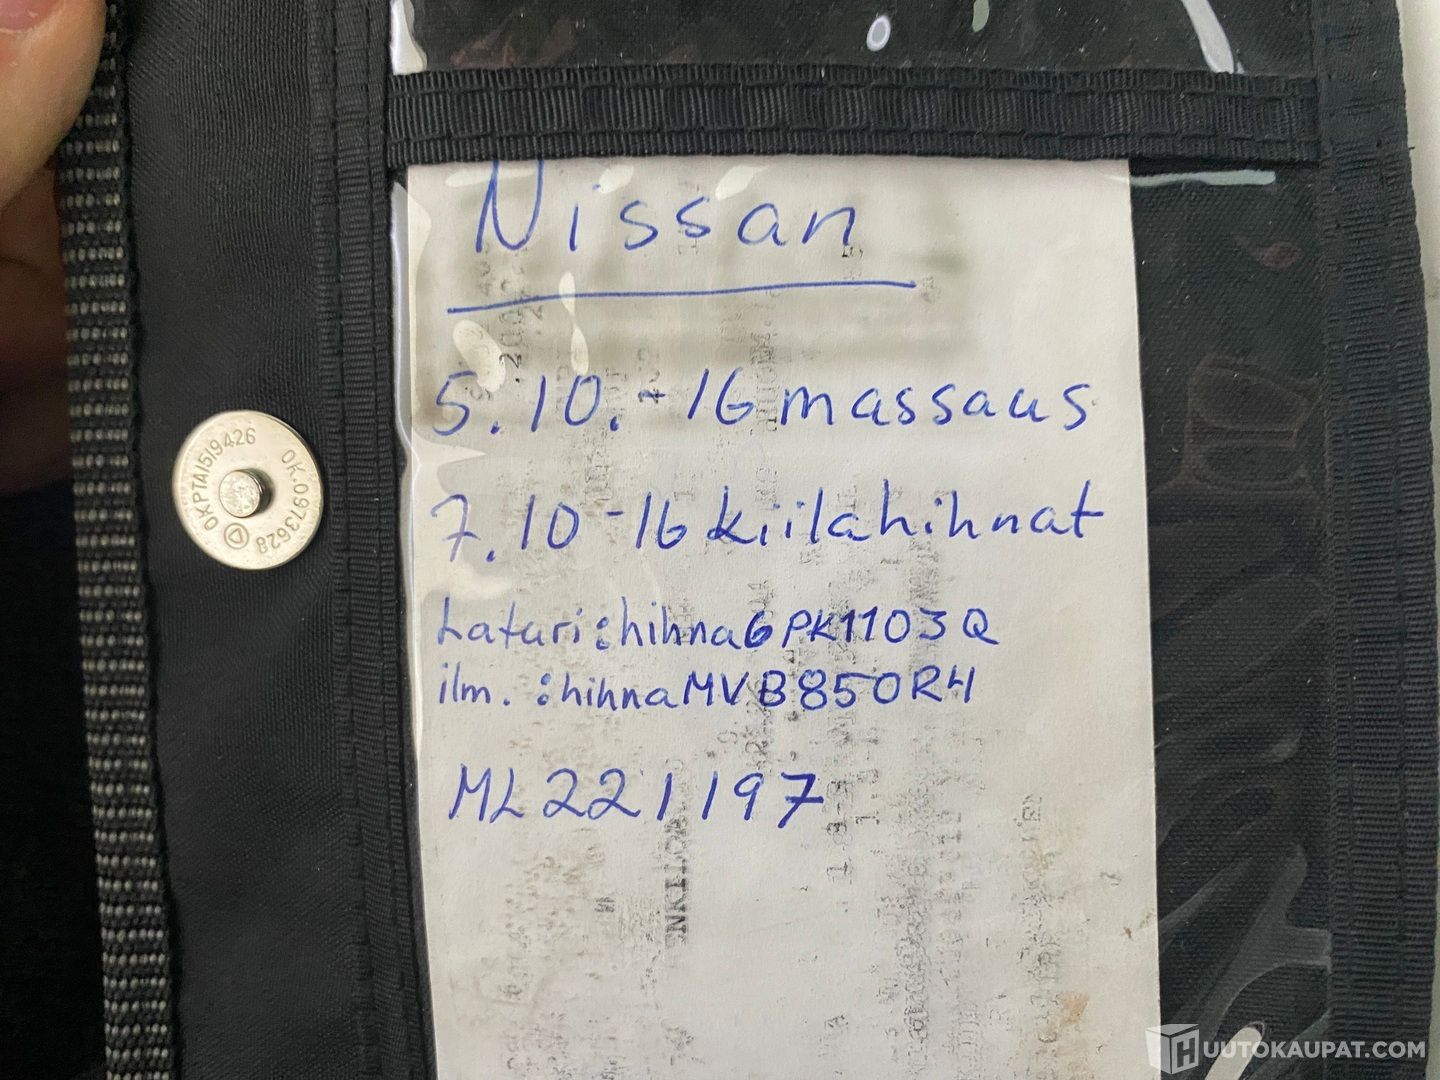 Nissan
5.10.-16 massaus
7.10-16 kiilahihnat
Laturi: hihna 6PK1103Q
ilm. : hihna MVB850R4
ML221197
OKPTA1519426
OK.0973628
HUUTOKAUPAT.COM